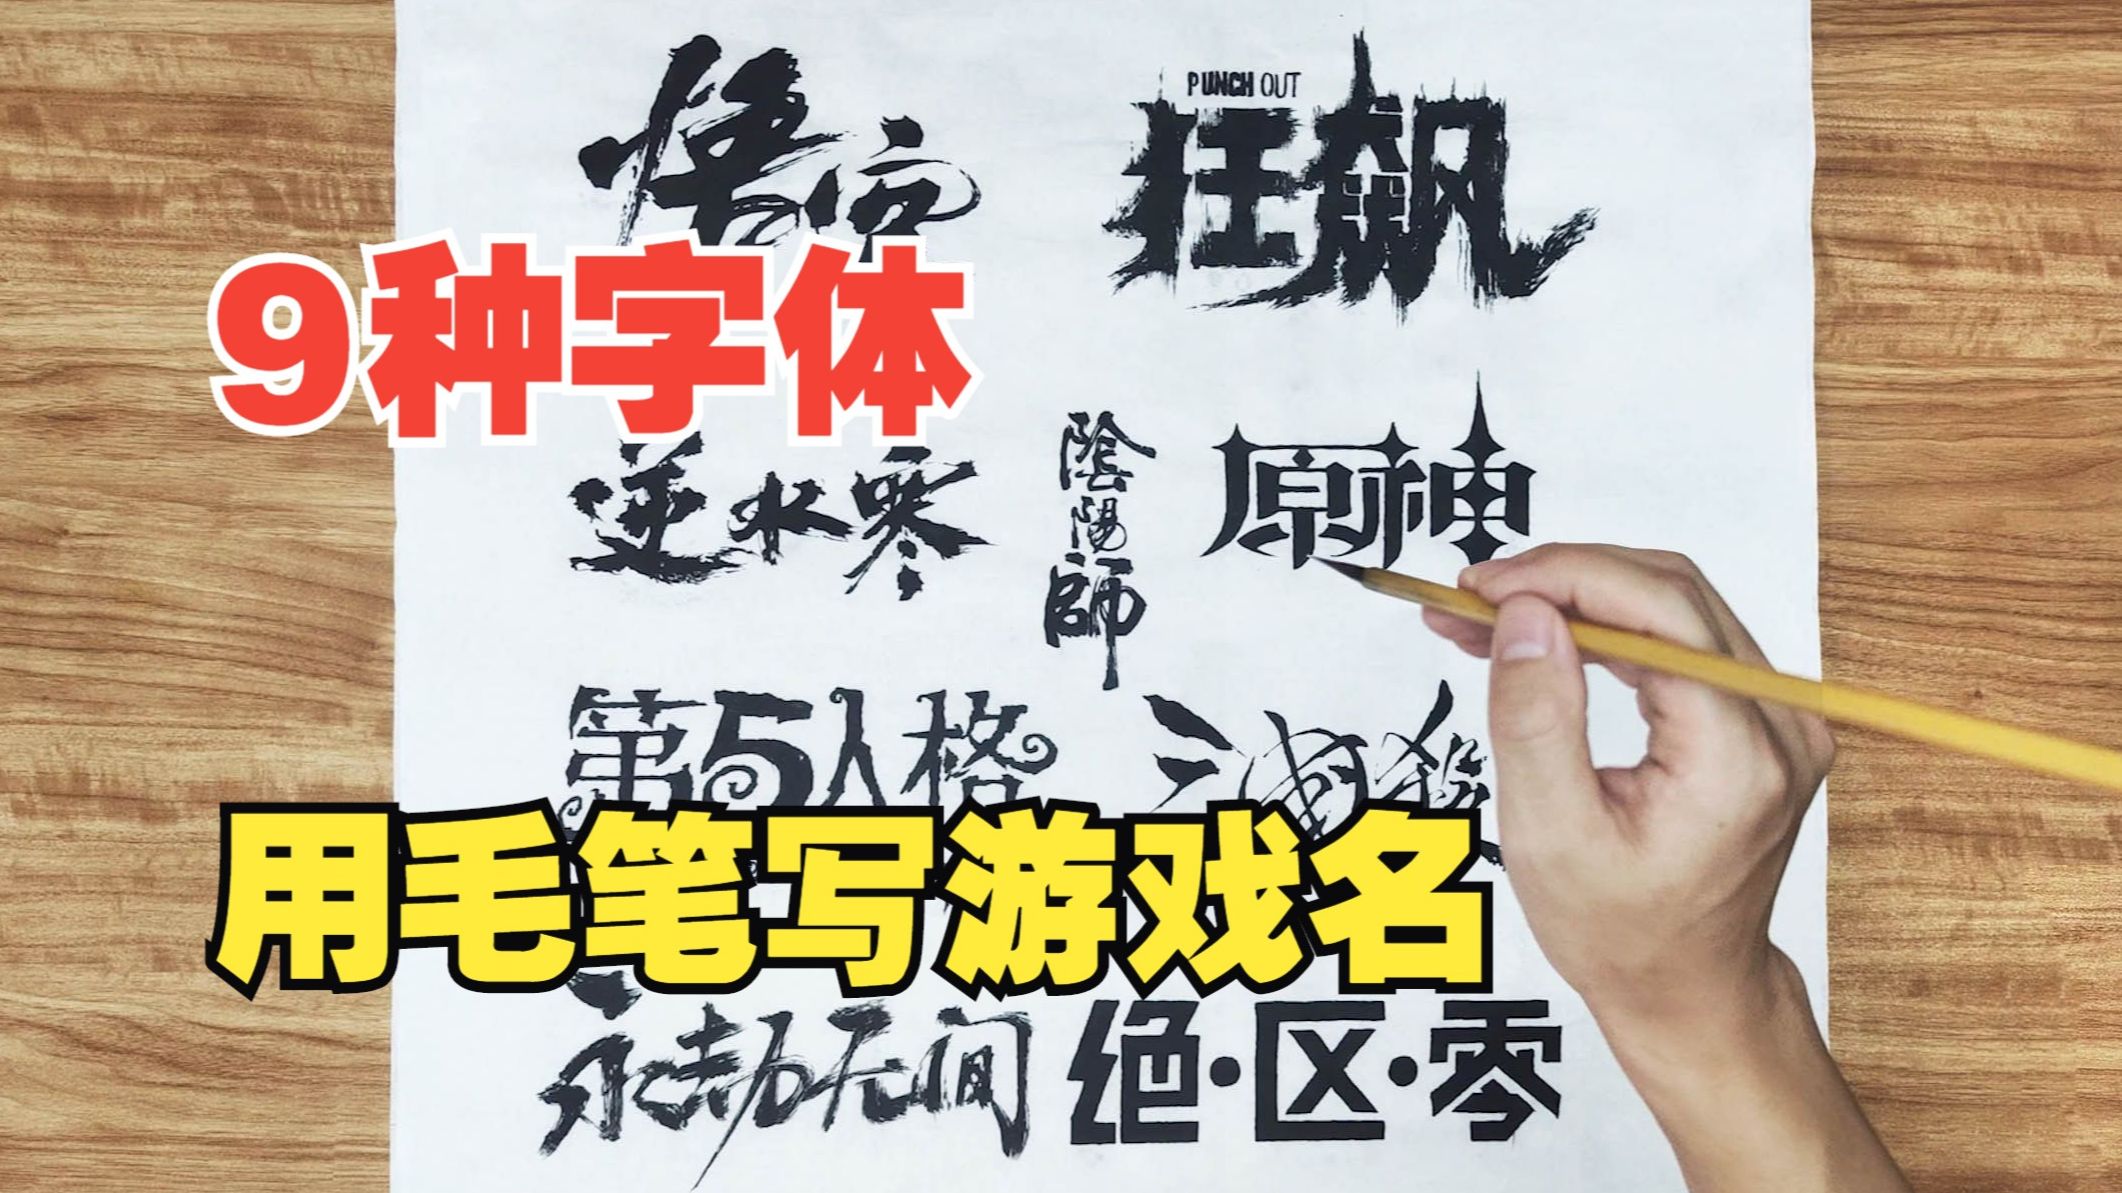 悟空
PUNCH OUT
狂飙
9种字体
逆水寒
陰陽師
原神
第5人格
三国殺
用毛笔写游戏名
永劫无间
绝·区·零